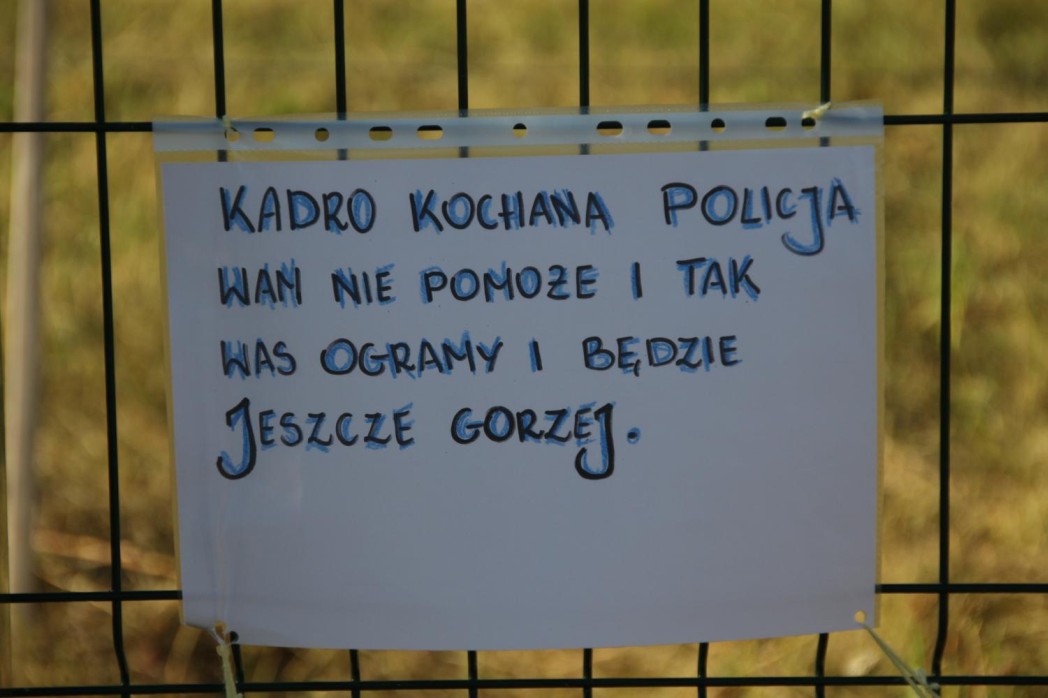 KADRO KOCHANA POLICJA
WAM NIE POMOŻE I TAK
WAS OGRAMY I BĘDZIE
JESZCZE GORZEJ.